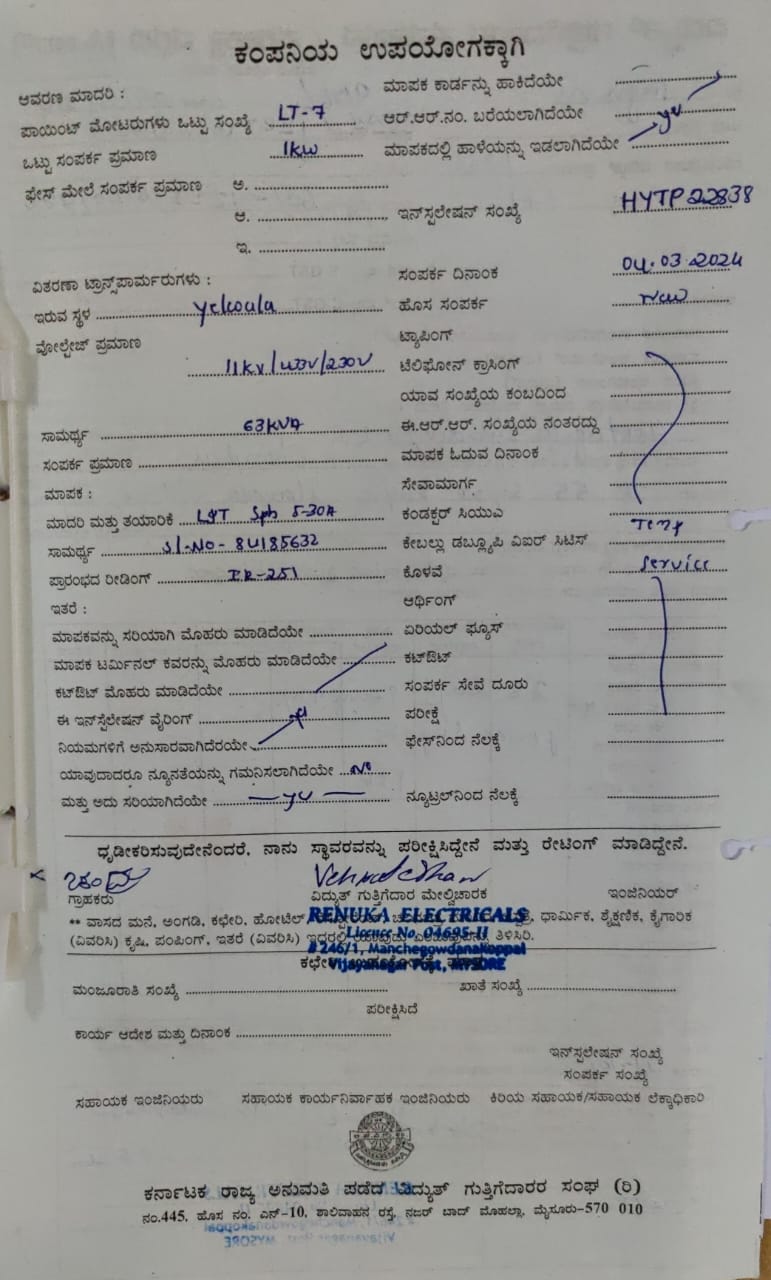 ಕಂಪನಿಯ ಉಪಯೋಗಕ್ಕಾಗಿ
ಆವರಣ ಮಾದರಿ :
ಮಾಪಕ ಕಾರ್ಡನ್ನು ಹಾಕಿದೆಯೇ
ಪಾಯಿಂಟ್ ಮೋಟರುಗಳು ಒಟ್ಟು ಸಂಖ್ಯೆ LT-7
ಆರ್.ಆರ್.ನಂ. ಬರೆಯಲಾಗಿದೆಯೇ
ಒಟ್ಟು ಸಂಪರ್ಕ ಪ್ರಮಾಣ 1kw
ಮಾಪಕದಲ್ಲಿ ಹಾಳೆಯನ್ನು ಇಡಲಾಗಿದೆಯೇ
ಫೇಸ್ ಮೇಲೆ ಸಂಪರ್ಕ ಪ್ರಮಾಣ ಅ.
ಆ.
ಇನ್‌ಸ್ಪಲೇಷನ್ ಸಂಖ್ಯೆ HYTP22838
ಇ.
ವಿತರಣಾ ಟ್ರಾನ್ಸ್‌ಪಾರ್ಮರುಗಳು :
ಸಂಪರ್ಕ ದಿನಾಂಕ 04.03.2024
ಇರುವ ಸ್ಥಳ
ಹೊಸ ಸಂಪರ್ಕ New
ವೋಲ್ಟೇಜ್ ಪ್ರಮಾಣ
ಟ್ಯಾಪಿಂಗ್
11kv/433V/230V
ಟೆಲಿಫೋನ್ ಕ್ರಾಸಿಂಗ್
ಯಾವ ಸಂಖ್ಯೆಯ ಕಂಬದಿಂದ
ಸಾಮರ್ಥ್ಯ 63KVA
ಈ.ಆರ್.ಆರ್. ಸಂಖ್ಯೆಯ ನಂತರದ್ದು
ಸಂಪರ್ಕ ಪ್ರಮಾಣ
ಮಾಪಕ ಓದುವ ದಿನಾಂಕ
ಮಾಪಕ :
ಸೇವಾಮಾರ್ಗ
ಮಾದರಿ ಮತ್ತು ತಯಾರಿಕೆ L&T Sph 5-30A
ಕಂಡಕ್ಟರ್ ಸಿಯುಎ Temp
ಸಾಮರ್ಥ್ಯ Sl-No-8U185632
ಕೇಬಲ್ಲು ಡಬ್ಲ್ಯೂಪಿ ವಿಐರ್ ಸಿಟಿಸ್
ಪ್ರಾರಂಭದ ರೀಡಿಂಗ್ IR-251
ಕೊಳವೆ Service
ಇತರೆ :
ಆರ್ಥಿಂಗ್
ಮಾಪಕವನ್ನು ಸರಿಯಾಗಿ ಮೊಹರು ಮಾಡಿದೆಯೇ
ಏರಿಯಲ್ ಫ್ಯೂಸ್
ಮಾಪಕ ಟರ್ಮಿನಲ್ ಕವರನ್ನು ಮೊಹರು ಮಾಡಿದೆಯೇ
ಕಟ್‌ಔಟ್
ಕಟ್‌ಔಟ್ ಮೊಹರು ಮಾಡಿದೆಯೇ
ಸಂಪರ್ಕ ಸೇವೆ ದೂರು
ಈ ಇನ್‌ಸ್ಪೆಲೇಷನ್ ವೈರಿಂಗ್
ಪರೀಕ್ಷೆ
ನಿಯಮಗಳಿಗೆ ಅನುಸಾರವಾಗಿದೆರಯೇ
ಫೇಸ್‌ನಿಂದ ನೆಲಕ್ಕೆ
ಯಾವುದಾದರೂ ನ್ಯೂನತೆಯನ್ನು ಗಮನಿಸಲಾಗಿದೆಯೇ No
ಮತ್ತು ಅದು ಸರಿಯಾಗಿದೆಯೇ
ನ್ಯೂಟ್ರಲ್‌ನಿಂದ ನೆಲಕ್ಕೆ
ಧೃಡೀಕರಿಸುವುದೇನೆಂದರೆ, ನಾನು ಸ್ಥಾವರವನ್ನು ಪರೀಕ್ಷಿಸಿದ್ದೇನೆ ಮತ್ತು ರೇಟಿಂಗ್ ಮಾಡಿದ್ದೇನೆ.
ಗ್ರಾಹಕರು ವಿದ್ಯುತ್ ಗುತ್ತಿಗೆದಾರ ಮೇಲ್ವಿಚಾರಕ ಇಂಜಿನಿಯರ್
RENUKA ELECTRICALS
** ವಾಸದ ಮನೆ, ಅಂಗಡಿ, ಕಛೇರಿ, ಹೋಟೆಲ್, ಧಾರ್ಮಿಕ, ಶೈಕ್ಷಣಿಕ, ಕೈಗಾರಿಕ
Licence No. 04695-II
(ವಿವರಿಸಿ) ಕೃಷಿ, ಪಂಪಿಂಗ್, ಇತರೆ (ವಿವರಿಸಿ) ಇದರಲ್ಲಿ ತಿಳಿಸಿರಿ.
#246/1, Manchegowdanakoppal
Vijayanagar Post, MYSORE
ಮಂಜೂರಾತಿ ಸಂಖ್ಯೆ ಖಾತೆ ಸಂಖ್ಯೆ
ಪರೀಕ್ಷಿಸಿದೆ
ಕಾರ್ಯ ಆದೇಶ ಮತ್ತು ದಿನಾಂಕ
ಇನ್‌ಸ್ಪಲೇಷನ್ ಸಂಖ್ಯೆ
ಸಂಪರ್ಕ ಸಂಖ್ಯೆ
ಸಹಾಯಕ ಇಂಜಿನಿಯರು ಸಹಾಯಕ ಕಾರ್ಯನಿರ್ವಾಹಕ ಇಂಜಿನಿಯರು ಕಿರಿಯ ಸಹಾಯಕ/ಸಹಾಯಕ ಲೆಕ್ಕಾಧಿಕಾರಿ
ಕರ್ನಾಟಕ ರಾಜ್ಯ ಅನುಮತಿ ಪಡೆದ ವಿದ್ಯುತ್ ಗುತ್ತಿಗೆದಾರರ ಸಂಘ (ರಿ)
ನಂ.445, ಹೊಸ ನಂ. ಎನ್-10, ಶಾಲಿವಾಹನ ರಸ್ತೆ, ನಜರ್ ಬಾದ್ ಮೊಹಲ್ಲಾ, ಮೈಸೂರು-570 010